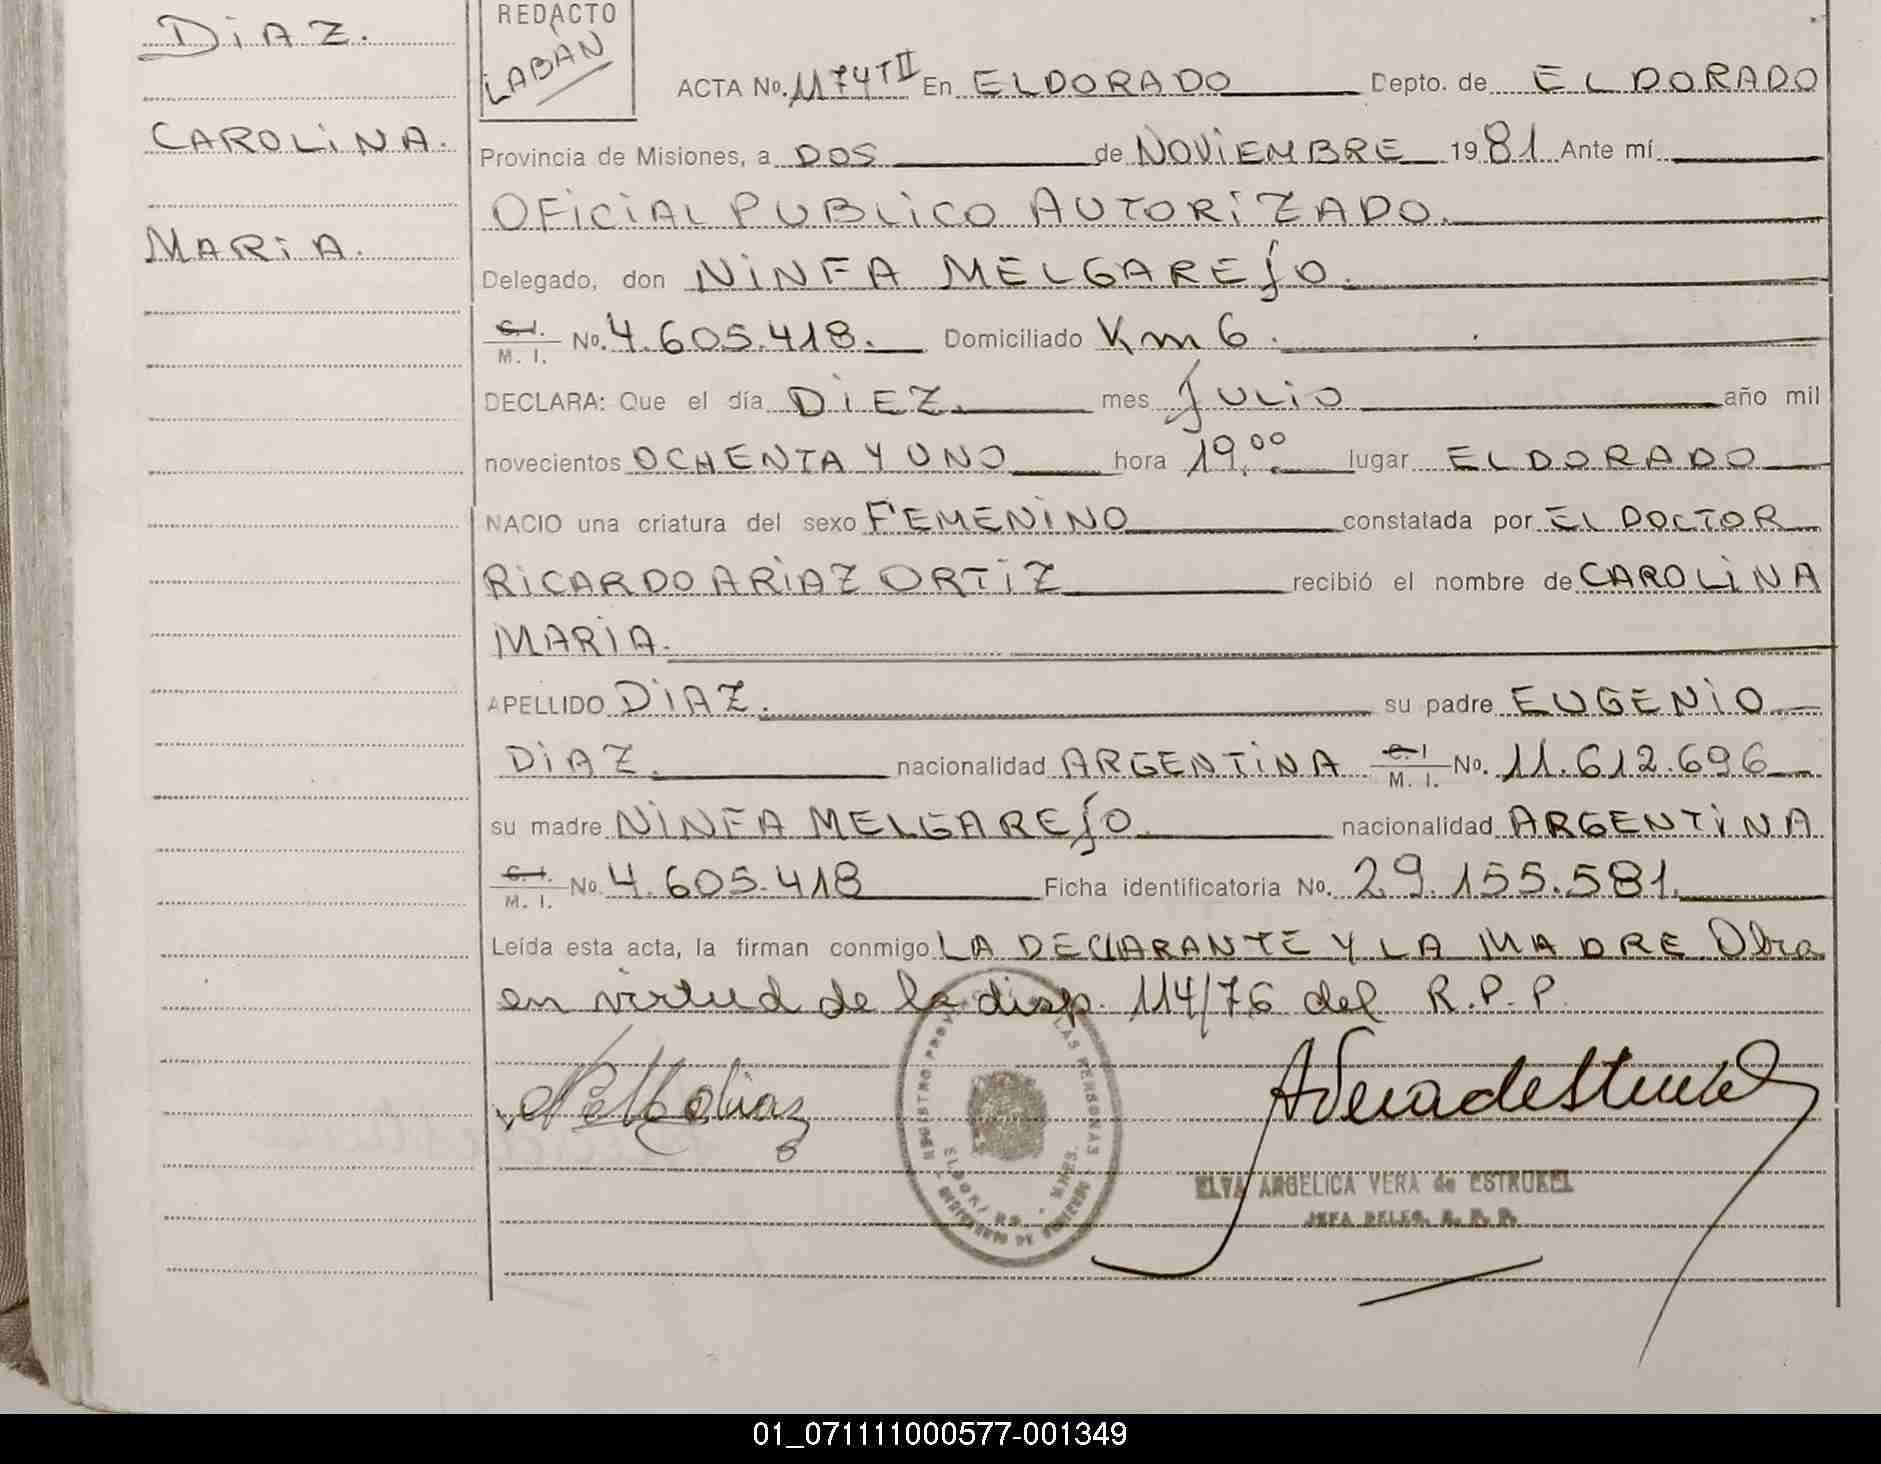 DIAZ.
CAROLINA.
MARIA.
REDACTO
LABAN
ACTA No. 1174 T II En ELDORADO Depto. de ELDORADO
Provincia de Misiones, a DOS de NOVIEMBRE 1981 Ante mí
OFICIAL PUBLICO AUTORIZADO.
Delegado, don NINFA MELGAREJO.
C. I. M. I. No. 4.605.418. Domiciliado Km 6.
DECLARA: Que el día DIEZ. mes JULIO año mil
novecientos OCHENTA Y UNO hora 19,00 lugar ELDORADO
NACIO una criatura del sexo FEMENINO constatada por EL DOCTOR
RICARDO ARIAZ ORTIZ recibió el nombre de CAROLINA
MARIA.
APELLIDO DIAZ. su padre EUGENIO
DIAZ. nacionalidad ARGENTINA C. I. M. I. No. 11.612.696
su madre NINFA MELGAREJO nacionalidad ARGENTINA
C. I. M. I. No. 4.605.418 Ficha identificatoria No. 29.155.581.
Leída esta acta, la firman conmigo LA DECLARANTE Y LA MADRE. Obra
en virtud de la disp. 114/76 del R.P.P.
AVeradeEstrukel
REGISTRO PROV. LAS PERSONAS
MINISTERIO DE GOBIERNO
ELDORADO - MNES.
ELVA ANGELICA VERA de ESTRUKEL
JEFA DELEG. R. P. P.
01_071111000577-001349